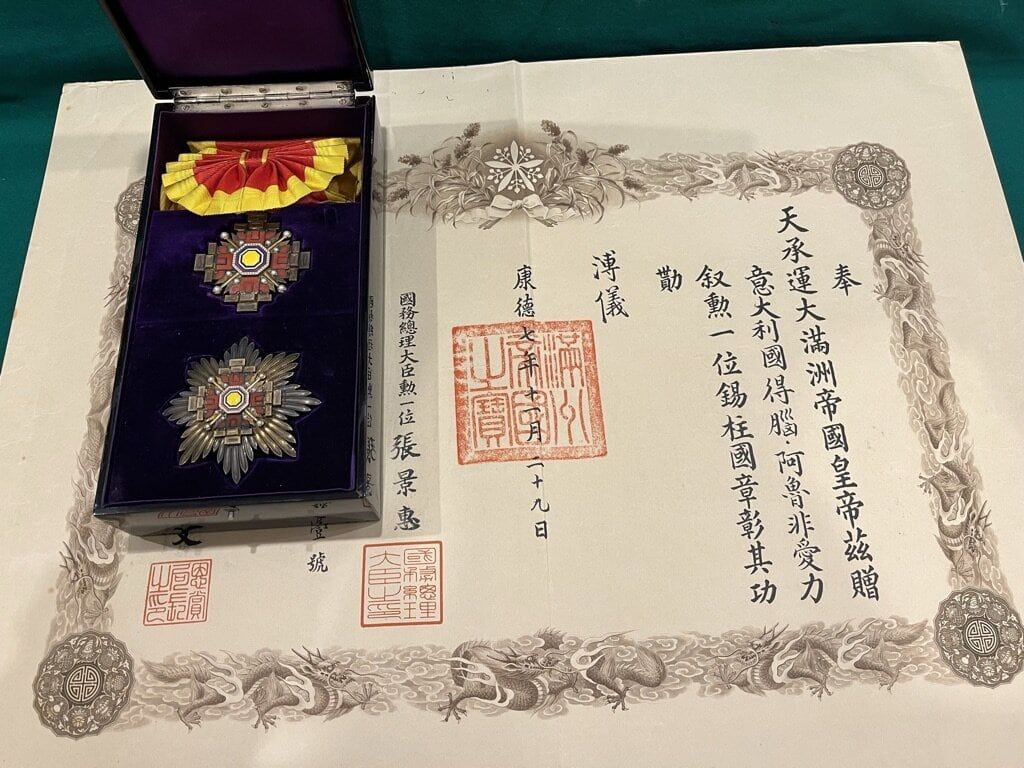 奉
天承運大滿洲帝國皇帝茲贈
意大利國得腦 阿魯非愛力
叙勲一位錫柱國章彰其功
勛
溥儀
康德七年十一月二十九日
之寶
國務總理大臣勲一位 張景惠
國務總理大臣之印
壹號
恩賞局長之印